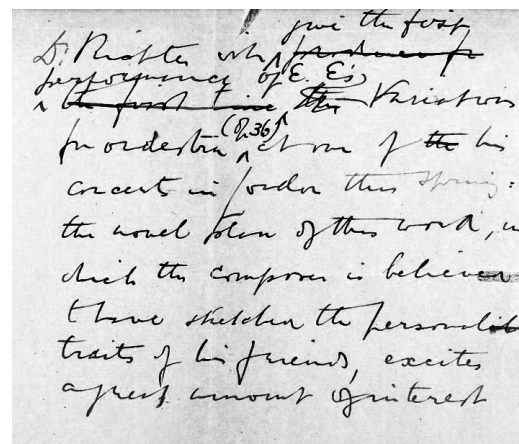 give the first
Dr. Richter will produce for
performance of E. E's
the first time the Variations
for orchestra (Op. 36) at one of the his
concerts in London this Spring:
the novel plan of this work, in
which the composer is believed
to have sketched the personal
traits of his friends, excites
a great amount of interest